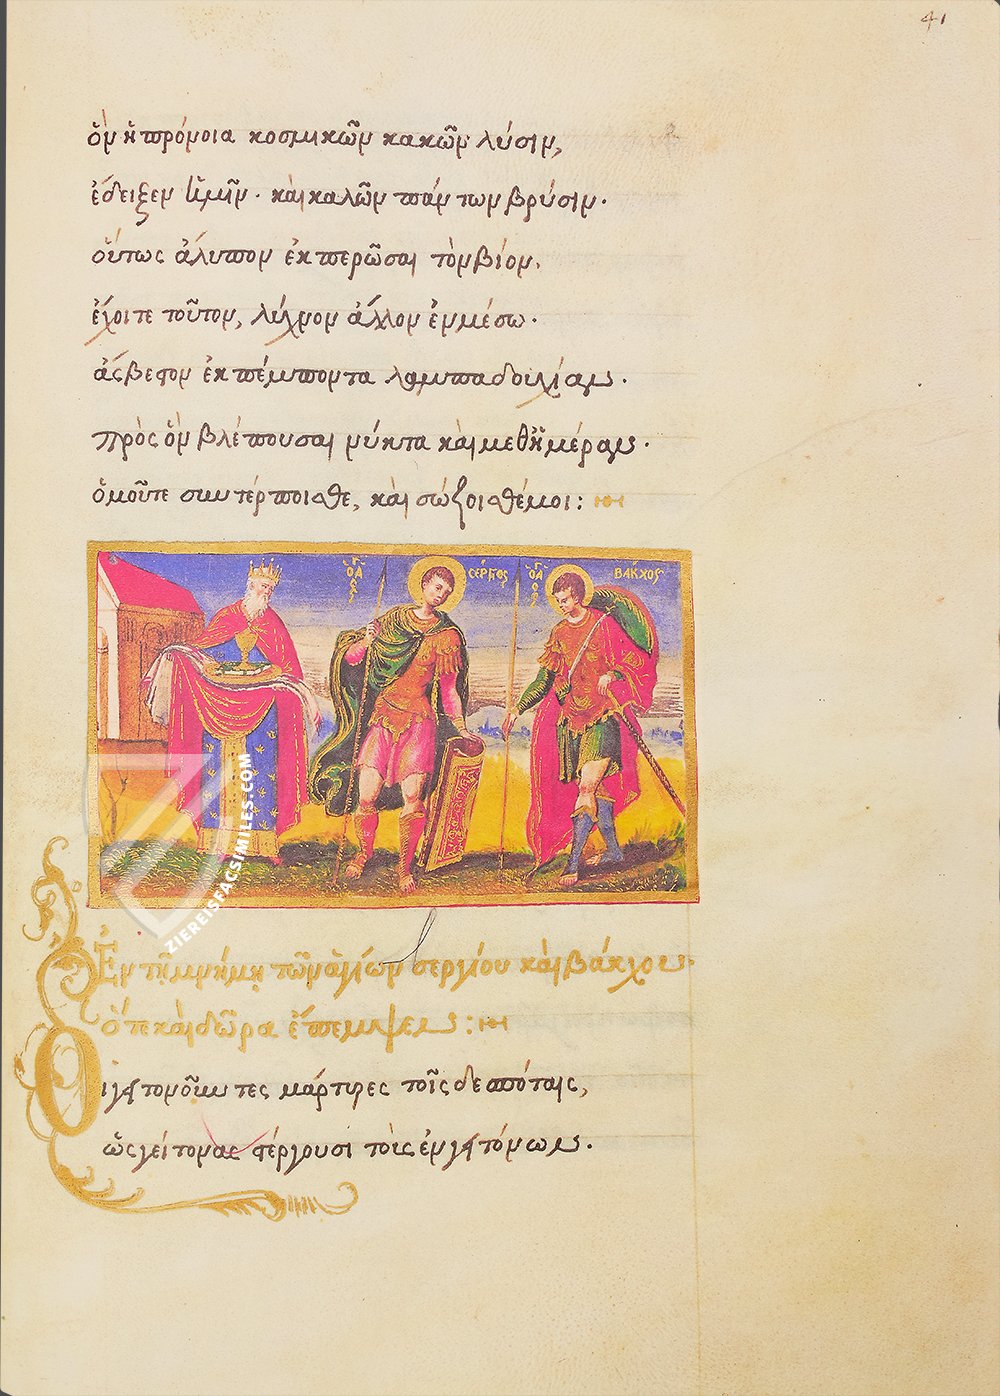 41
ὃν ἡ πρόνοια κοσμικῶν κακῶν λύσιν,
ἔδειξεν ὑμῖν· καὶ καλῶν πάντων βρύσιν·
οὕτως ἄλυπον ἐκπερῶσαι τὸν βίον,
ἔχοιτε τοῦτον, λύχνον ἄλλον ἐν μέσω·
ἄσβεστον ἐκπέμποντα λαμπαδουχίαν·
πρὸς ὃν βλέπουσαι νύκτα καὶ μεθημέραν·
ὁμοῦ τε συντέρποισθε, καὶ σώζοισθέ μοι:
Ο ΑΓΙΟΣ ΣΕΡΓΙΟΣ Ο ΑΓΙΟΣ ΒΑΚΧΟΣ
Ἐν τῇ μνήμῃ τῶν ἁγίων σεργίου καὶ βάκχου·
ὅτε καὶ δῶρα ἔπεμψεν:
Οἱ γειτονοῦντες μάρτυρες τοῖς δεσπόταις,
ὡς γείτονας στέργουσι τοὺς ἐν γειτόνων·
ZIEREISFACSIMILES.COM